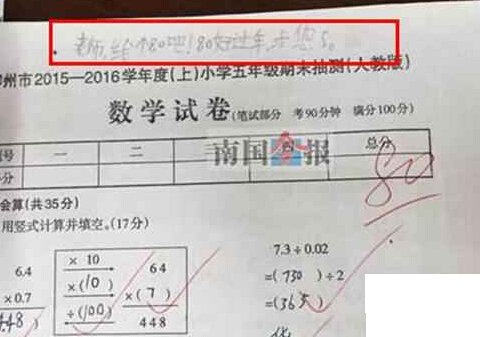 老师,给个80吧!80好过年,求您了。
州市2015—2016学年度(上)小学五年级期末抽测(人教版)
数学试卷(笔试部分 考90分钟 满分100分)
号 一 二 四 总分
分
南国今报
80
会算(共35分)
用竖式计算并填空。(17分)
× 10
6.4 ×(10) 64
×0.7 ×(7)
4.48) ÷(100) 448
7.3÷0.02
=(730)÷2
=(365)